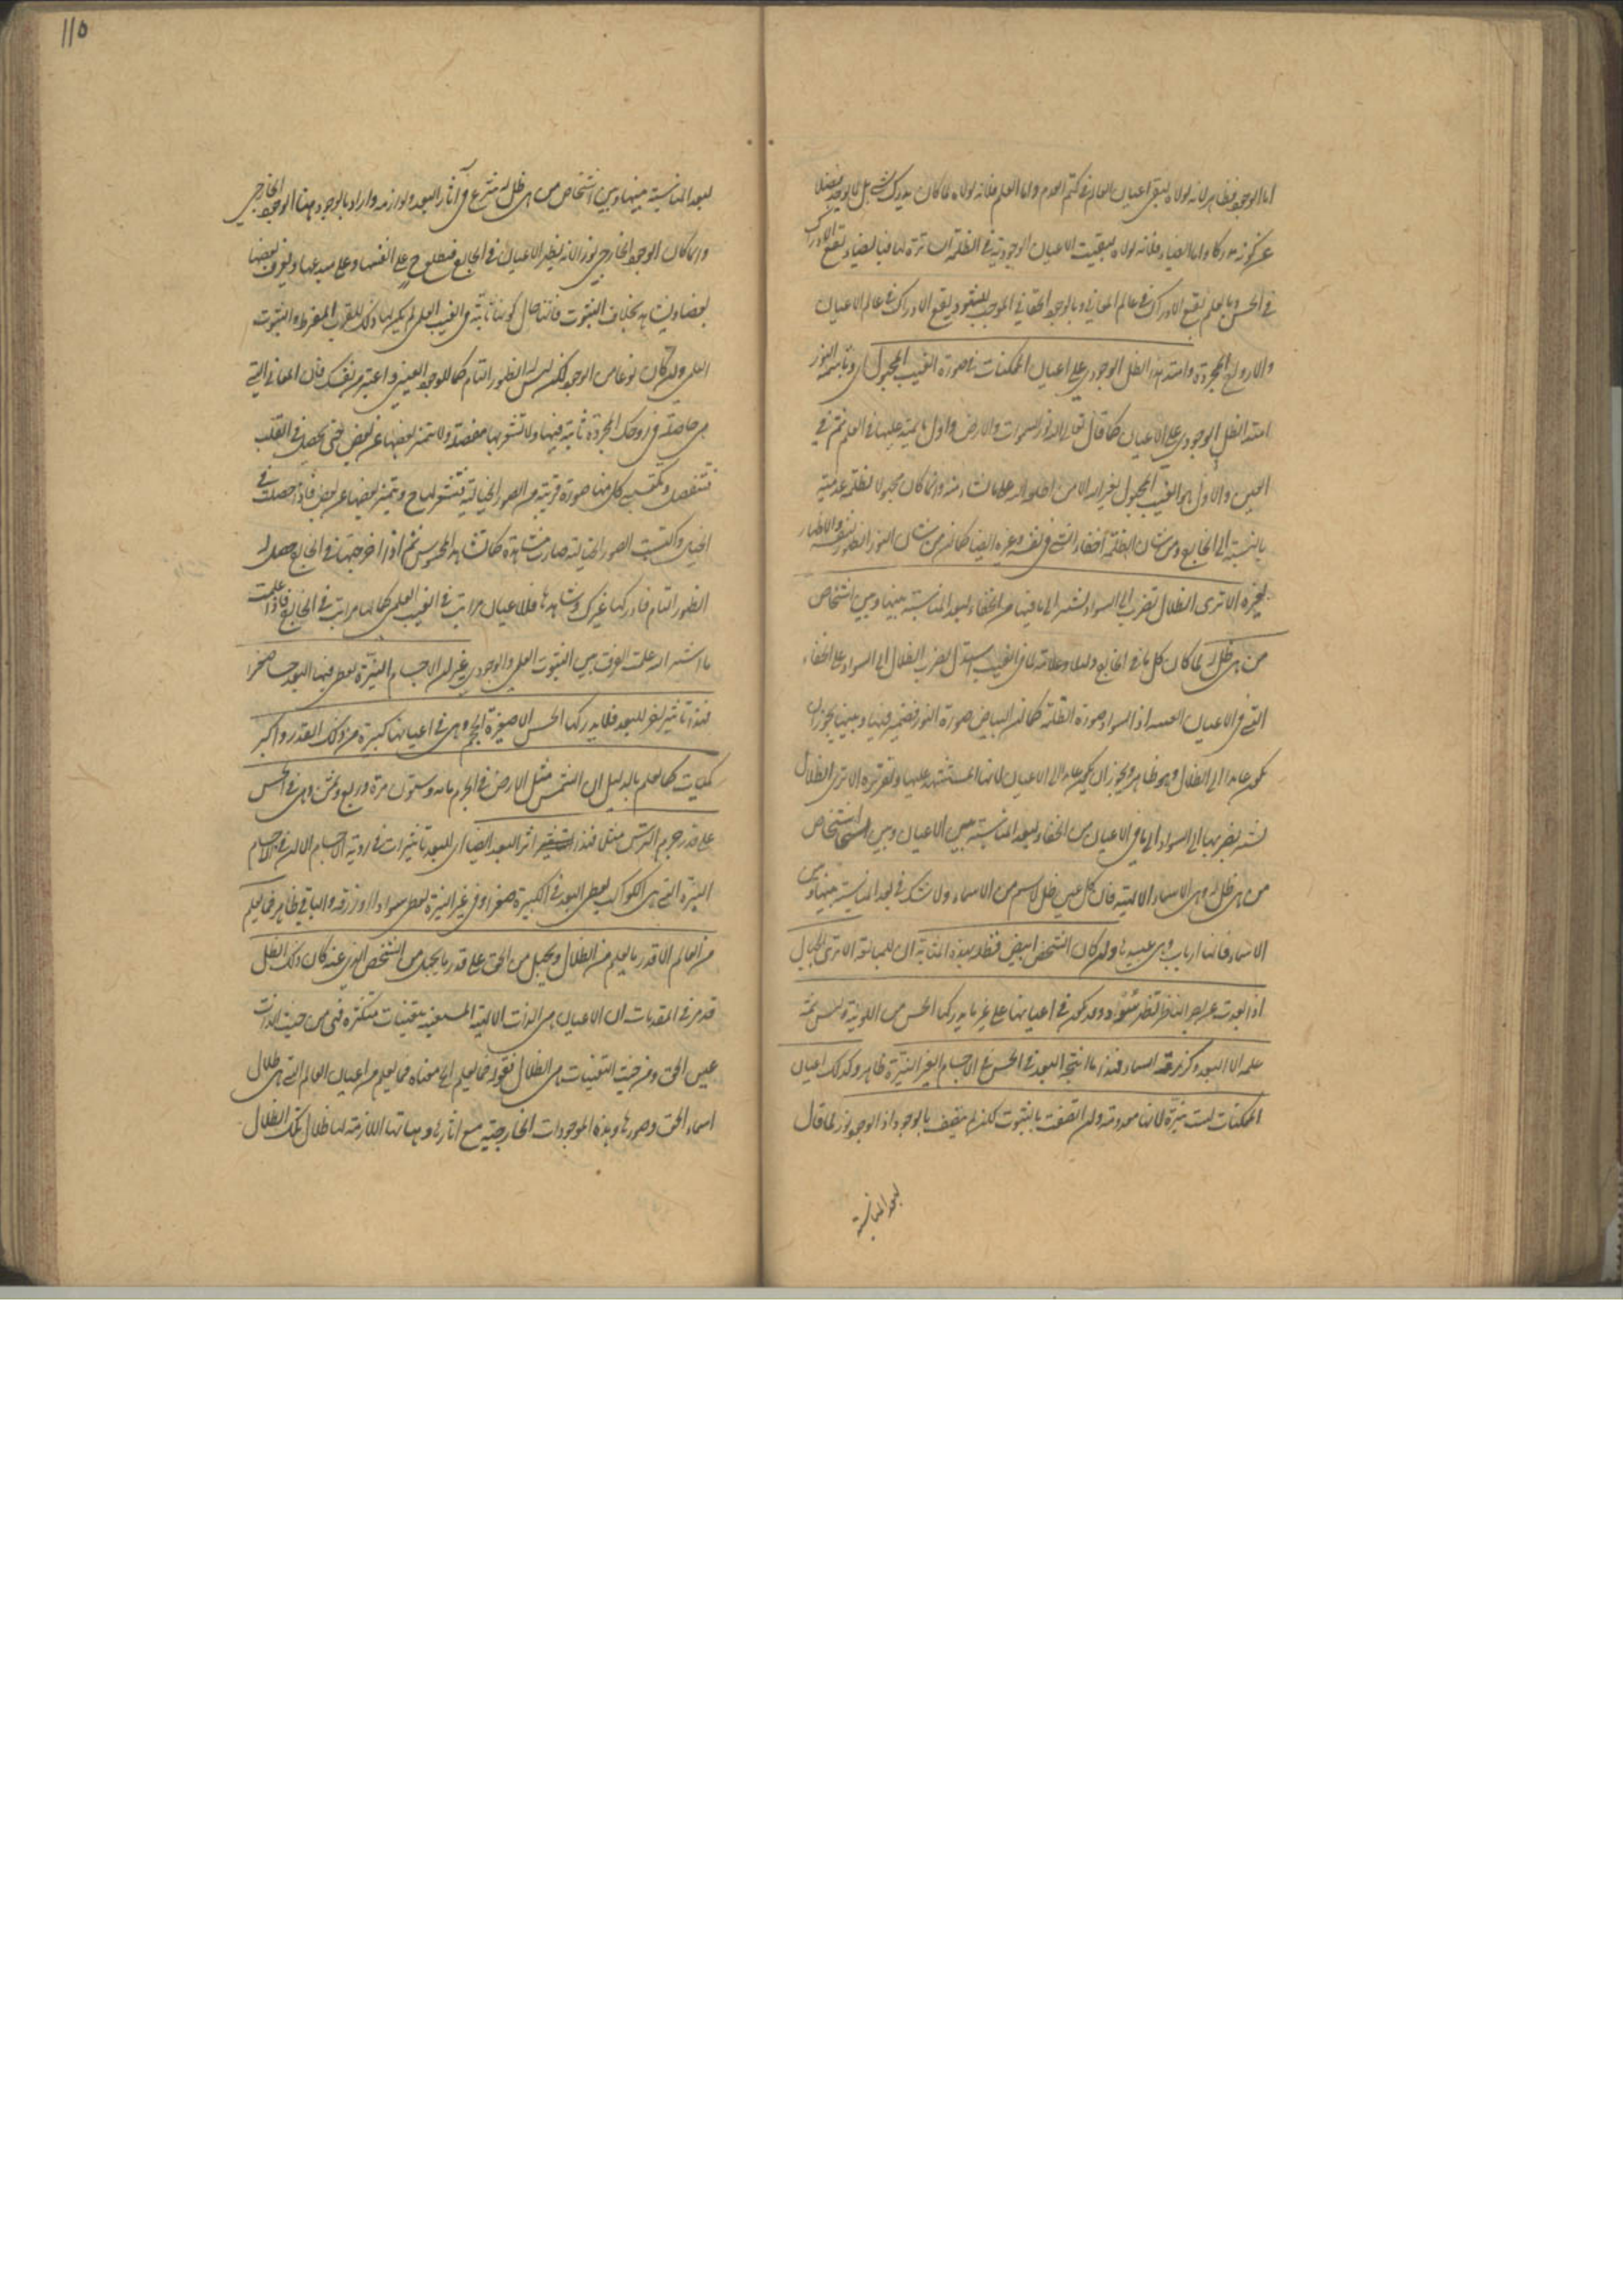 اما الوجود فظاهر لانه لولاه لبقى اعيان العالم فى كتم العدم واما العلم فلانه لولاه لما كان يدرك شئ بل لا يوجد فضلا
عن كونه مدركا واما الضياء فلانه لولاه لبقيت الاعيان الوجودية فى الظلمة الساترة لها فبالضياء يقع الادراك
فى الحس وبالعلم يقع الادراك فى عالم المعانى وبالوجود الحقانى الموجب للشهود يقع الادراك فى عالم الاعيان
والارواح المجردة وامتد هذا الظل الوجودى على اعيان الممكنات فى صورة الغيب المجهول اى وباسمه النور
امتد الظل الوجودى على الاعيان كما قال تعالى الله نور السموات والارض واول ما يمتد عليها فى العلم ثم فى
العين والاول هو الغيب المجهول لغير الله الا من اطلعه الله على ما شاء منه وانما كان مجهولا لظلمة عدميته
بالنسبة الى الخارج ومن شان الظلمة اخفاء الشئ فى نفسه وغيره ايضا كما ان من شان النور الظهور بنفسه والاظهار
لغيره الا ترى الظلال تضرب الى السواد تشير الى ما فيها من الخفاء لبعد المناسبة بينها وبين اشخاص
من هى ظل له لما كان كل ما فى الخارج دليلا وعلامة لما فى الغيب استدل بضرب الظلال الى السواد على الخفاء
التى فى الاعيان اذ السواد صورة الظلمة كما ان البياض صورة النور فضمير فيها وبينها يجوز ان
يكون عائدا الى الظلال وهو ظاهر ويجوز ان يكون عائدا الى الاعيان لانها المستشهد عليها وتقريره الا ترى الظلال
تشير بضربها الى السواد الى ما فى الاعيان من الخفاء لبعد المناسبة بين الاعيان وبين اشخاص
من هى ظل له وهى الاسماء الالهية فان كل عين ظل لاسم من الاسماء ولا شك فى بعد المناسبة بينها وبين
الاسماء فانها ارباب وهى عبيدها وان كان الشخص ابيض فظله بهذه المثابة ان للمبالغة الا ترى الجبال
اذا بعدت عن بصر الناظر تظهر سوداء وقد تكون فى اعيانها على غير ما يدركها الحس من اللونية وليس ثمة
علة الا البعد وكزرقة السماء فهذا ما انتجه البعد فى الحس فى الاجسام الغير النيرة ظاهر وكذلك اعيان
الممكنات ليست نيرة لانها معدومة وان اتصفت بالثبوت لكن لم تتصف بالوجود اذ الوجود نور لما قال
لبعد المناسبة
١١٥
لبعد المناسبة بينها وبين اشخاص من هى ظل له شرع فى آثار البعد ولوازمه واراد بالوجود هنا الوجود الخارجى
وانما كان الوجود الخارجى نورا لانه يظهر الاعيان فى الخارج فتطلع ح على انفسها وعلى مبدعها ويعرف بعضها
بعضا ويشاهده بخلاف الثبوت فانها حال كونها ثابتة فى الغيب العلمى لم يكن لها ذلك للقرب المفرط والثبوت
العلمى وان كان نوعا من الوجود لكن ليس له الظهور التام كما للوجود العينى واعتبر من نفسك فان المعانى التى
هى حاصلة فى روحك المجردة ثابتة فيها ولا تشعر بها مفصلة ولا يتميز بعضها عن بعض حتى يحصل فى القلب
فتنفصل ويكتسب كل منها صورة قريبة من الصور الخيالية فتشعر لها ح ويتميز بعضها عن بعض فاذا حصلت فى
الخيال واكتسبت الصور الخيالية صارت مشاهدة كما تشاهد المحسوس ثم اذا اخرجتها فى الخارج حصل لها
الظهور التام فادركها غيرك وشاهدها فللاعيان مراتب فى الغيب العلمى كما لها مراتب فى الخارج فاذا علمت
ما اشير اليه علمت الفرق بين الثبوت العلمى والوجودى غير ان الاجسام النيرة يعطى فيها البعد حسا صغرا
فهذا تاثير اخر للبعد فلا يدركها الحس الا صغيرة الحجم وهى فى اعيانها كبيرة من ذلك القدر واكبر
كميات كما يعلم بالدليل ان الشمس مثل الارض فى الجرم مائة وستون مرة وربع وثمن وهى فى الحس
على قدر جرم الترس مثلا فهذا اثر البعد ايضا اى للبعد تاثيرات فى روية الاجسام الا ان فى الاجسام
النيرة التى هى الكواكب يعطى البعد فى الكبيرة صغرا وفى غير النيرة يعطى سوادا او زرقة والباقى ظاهر فما يعلم
من العالم الا قدر ما يعلم من الظلال ويجهل من الحق على قدر ما يجهل من الشخص الذى عنه كان ذلك الظل
قد مر فى المقدمات ان الاعيان هى الذات الالهية المتعينة بتعينات متكثرة فهى من حيث الذات
عين الحق ومن حيث التعينات هى الظلال فقوله فما يعلم الخ معناه فما يعلم من اعيان العالم التى هى ظلال
اسماء الحق وصورها وهذه الموجودات الخارجية مع آثارها وهيئاتها اللازمة لها ظلال تلك الظلال